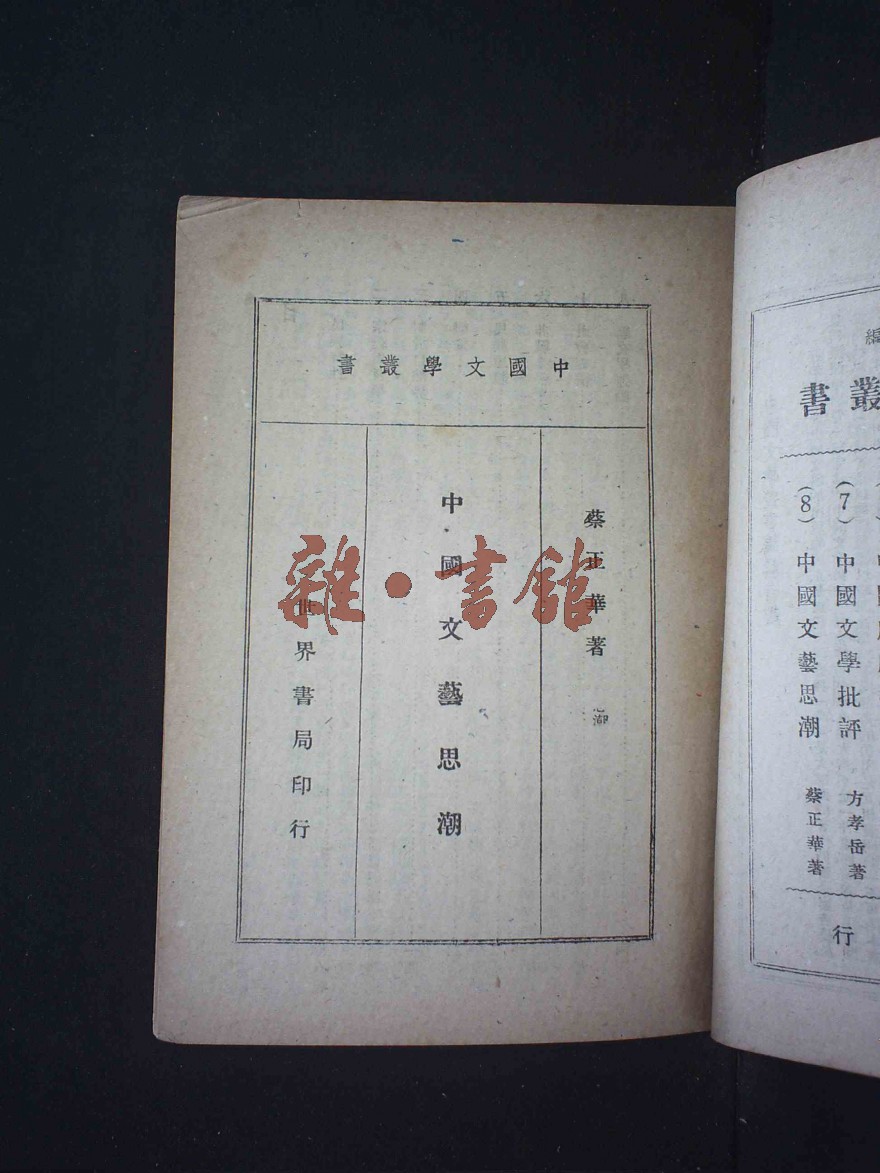 中國文學叢書
蔡正華著
中國文藝思潮
世界書局印行
雜·書館
編
叢書
(7) 中國文學批評 方孝岳著
(8) 中國文藝思潮 蔡正華著
行